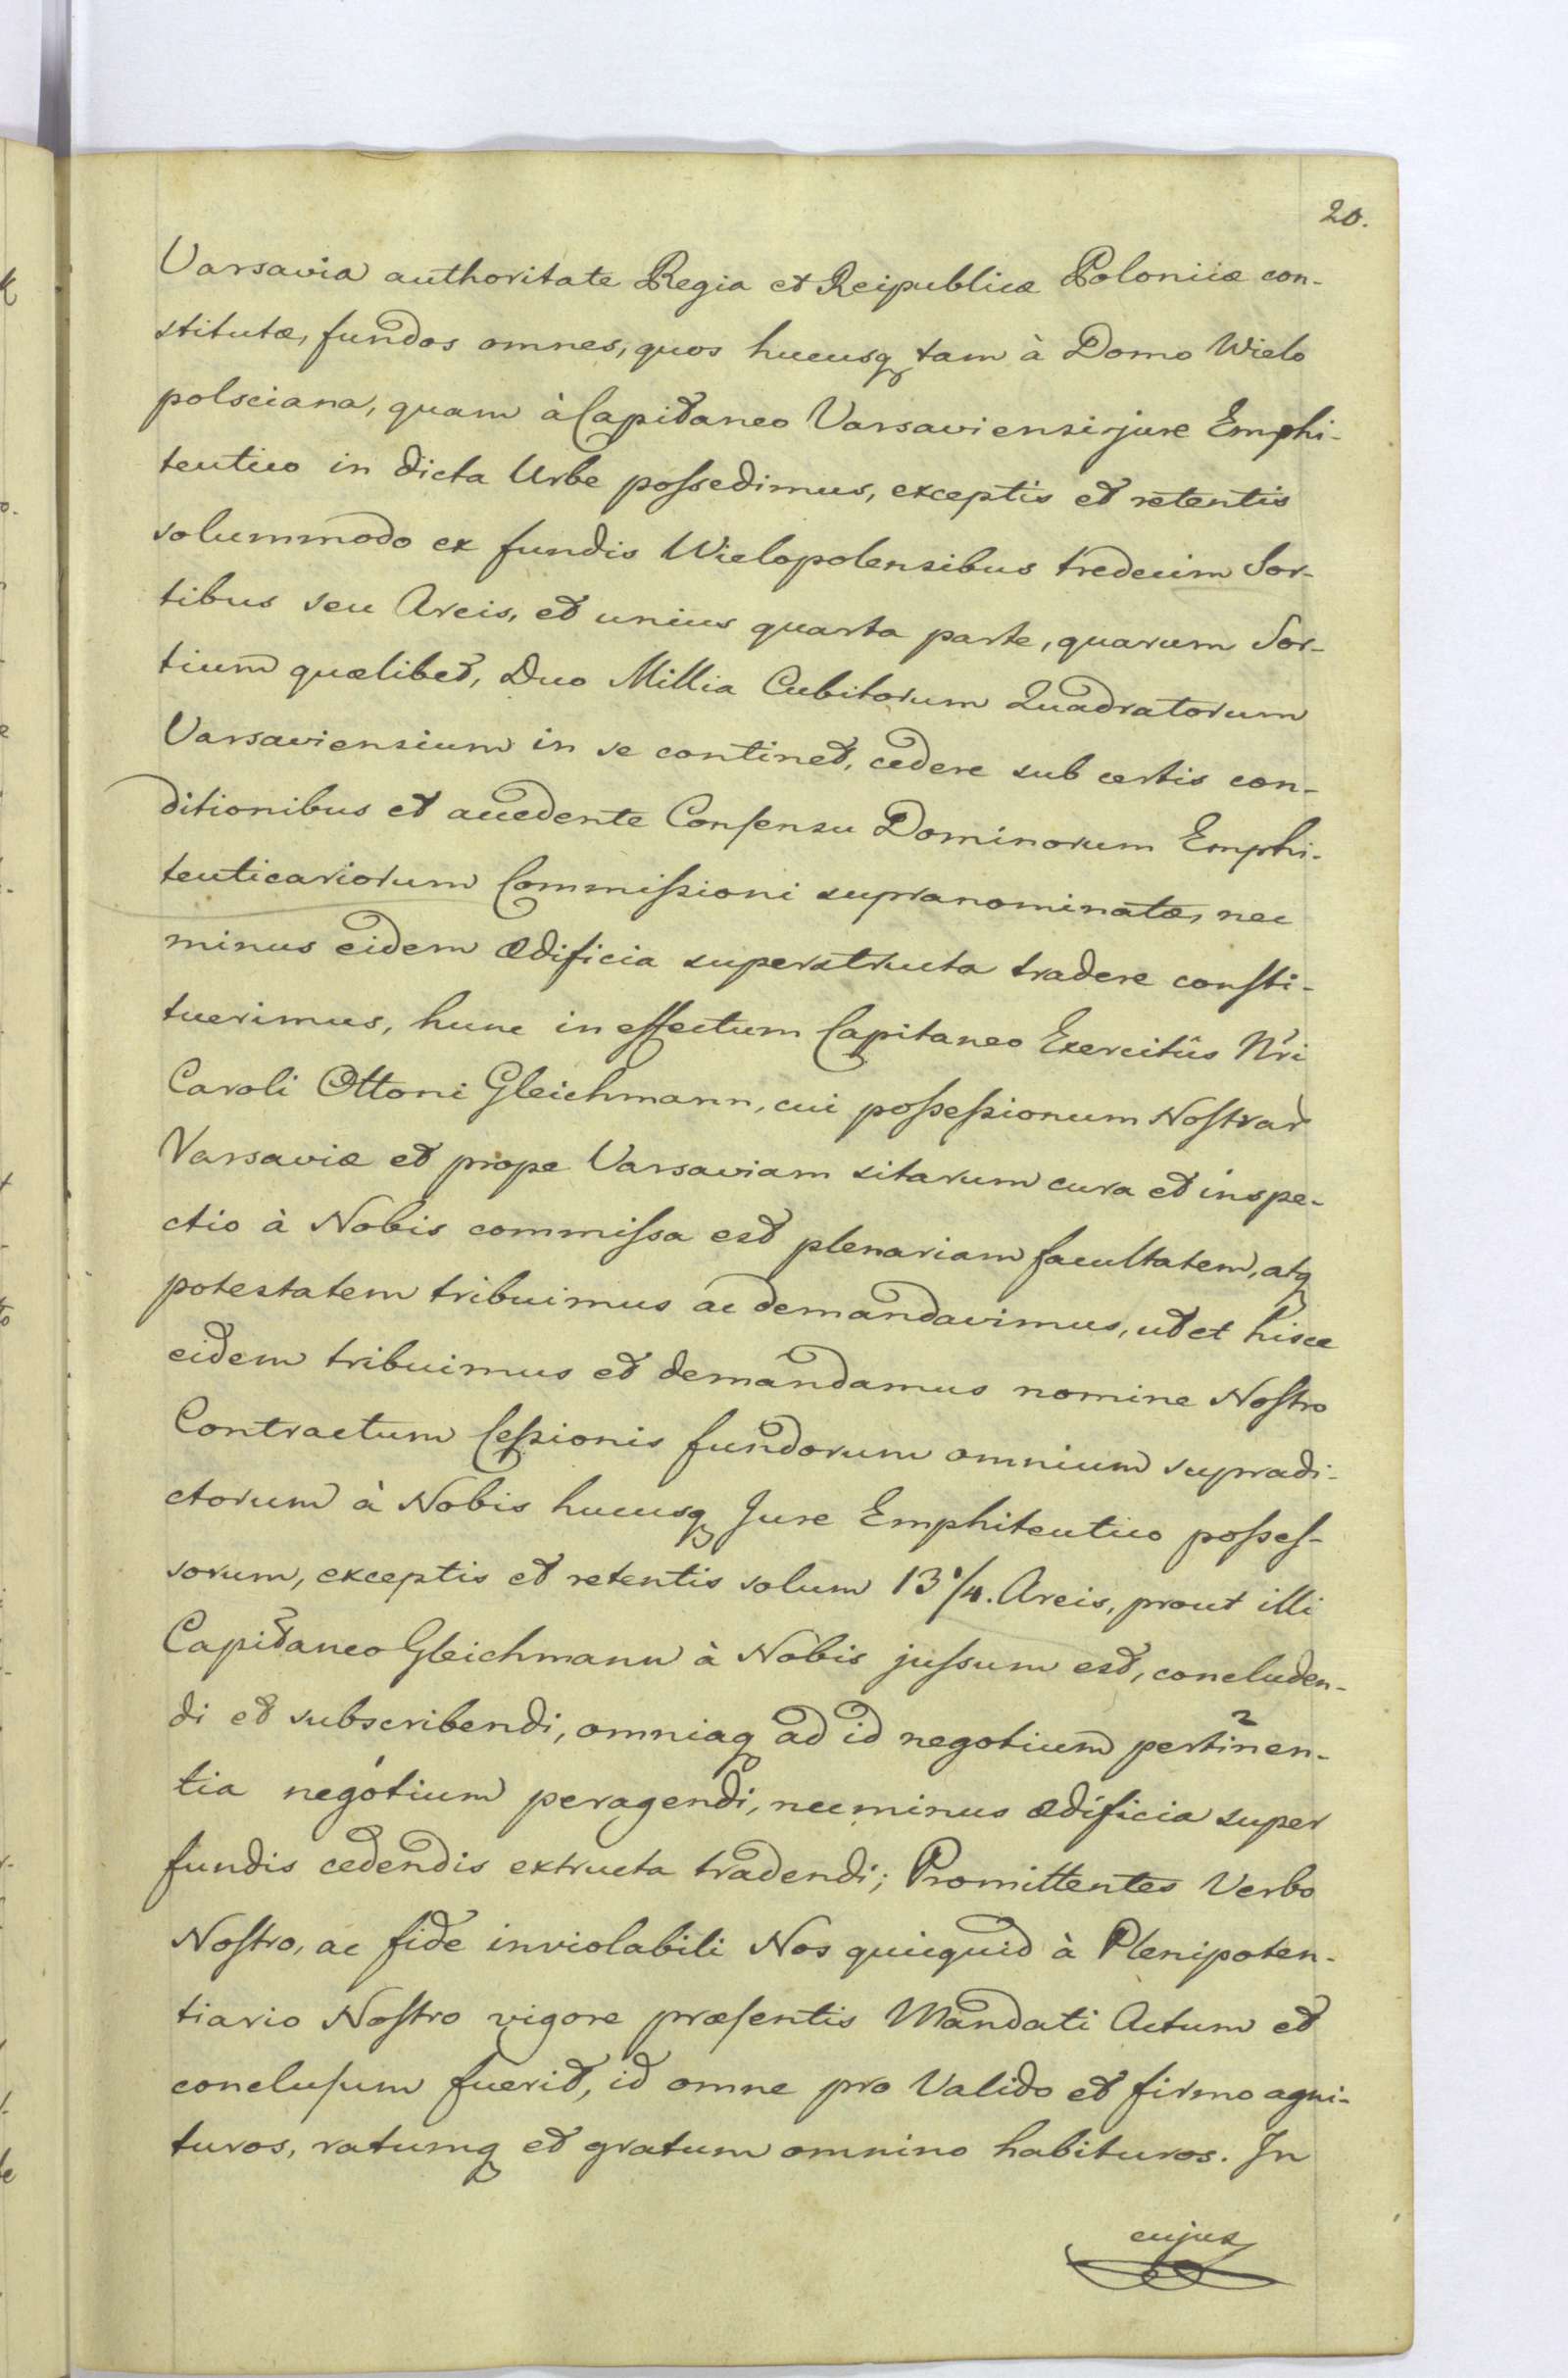 20.
Varsavia authoritate Regia et Reipublicæ Poloniæ con-
stitutæ, fundos omnes, quos hucusq tam à Domo Wielo
polsciana, quam à Capitaneo Varsaviensi jure Emphi-
teutico in dicta Urbe poſsedimus, exceptis et retentis
solummodo ex fundis Wielopolensibus tredecim Sor-
tibus seu Areis, et unius quarta parte, quarum Sor-
tium quælibet, Duo Millia Cubitorum Quadratorum
Varsaviensium in se continet, cedere sub certis con-
ditionibus et accedente Conſensu Dominorum Emphi-
teuticariorum Commiſsioni supranominatæ, nec
minus eidem ædificia superstructa tradere conſti-
tuerimus, hunc in effectum Capitaneo Exercitûs Nri
Caroli Ottoni Gleichmann, cui poſseſsionum Noſtrar
Varsaviæ et prope Varsaviam sitarum cura et inspe-
ctio à Nobis commiſsa est plenariam facultatem, atq
potestatem tribuimus ac demandavimus, ut et hisce
eidem tribuimus et demandamus nomine Noſtro
Contractum Ceſsionis fundorum omnium supradi-
ctorum à Nobis hucusq Jure Emphiteutico poſseſ-
sorum, exceptis et retentis solum 13 1/4. Areis, prout illi
Capitaneo Gleichmann à Nobis juſsum est, concluden-
di et subscribendi, omniaq ad id negotium pertinen-
tia negotium peragendi, nec minus ædificia super
fundis cedendis extructa tradendi; Promittentes Verbo
Noſtro, ac fide inviolabili Nos quicquid à Plenipoten-
tiario Noſtro vigore præſentis Mandati Actum et
concluſum fuerit, id omne pro Valido et firmo agni-
turos, ratumq et gratum omnino habituros. In
cujus